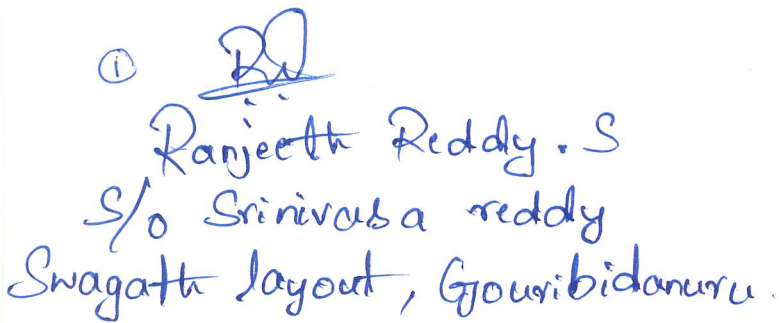 ①
Ranjeeth Reddy. S
S/o Srinivasa reddy
Swagath layout, Gouribidanuru.